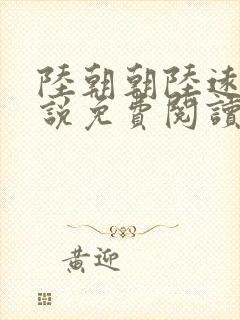 陸朝朝陸遠
說免費閱讀
黃迎